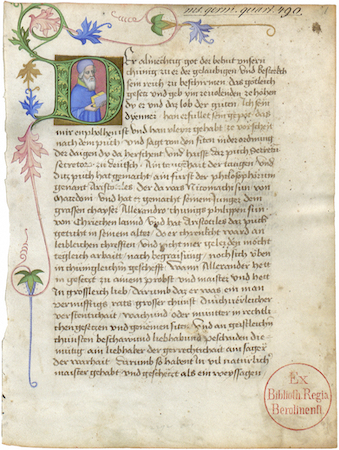 ms. germ. quart. 490.
Er almechtig got der behüt unsern
chünig zu er der gelaubigen und bestettch
sein reich zu beschirmen das götleich
gesetz und geb im ze hohen
dy er und daz lob der guten Ich sein
dyenner han erfullet sein gepot das
mir enpholhen ist und han vleys gehabt ze vorschen
nach dem puch und sagt von den siten in der ordnung
der dy da herschent und haisst daz puch Secreti
secretorum ze deutsch Ain der taugen Und
ditz puch hat gemacht ain furst der philosophorum
genant Aristotiles der da was Nitomachi sun von
Macedoni und hat es gemacht seinem Junger dem
grossen chayser Allexandro chunigs philippen sun
von Chriechen lannd und hat Aristotiles daz puch
geticht in seinem alter do er chrenckt ward an
leibleichen chrefften und nicht mer geleyden mocht
tegleich arbait noch begraiffung noch sich uben
in chunigleichen geschefft Wann Allexander hett
in gesetzt zu ainem probst und maister und hett
in grossleich lieb Darumb daz er was ain man
vernufftigs rats grosser chunst
verstentichait Wachund oder munter in rechtli
chen gesetzen und gemainen siten Und an geistleichn
chunsten beschawund liebhabund
mutig ain liebhaber der gerechtichait ain sager
der warhait Darumb so habent in vil naturlich
maister gehabt und geschetzt als ein weyssagen
Ex
Biblioth. Regia
Berolinensi.